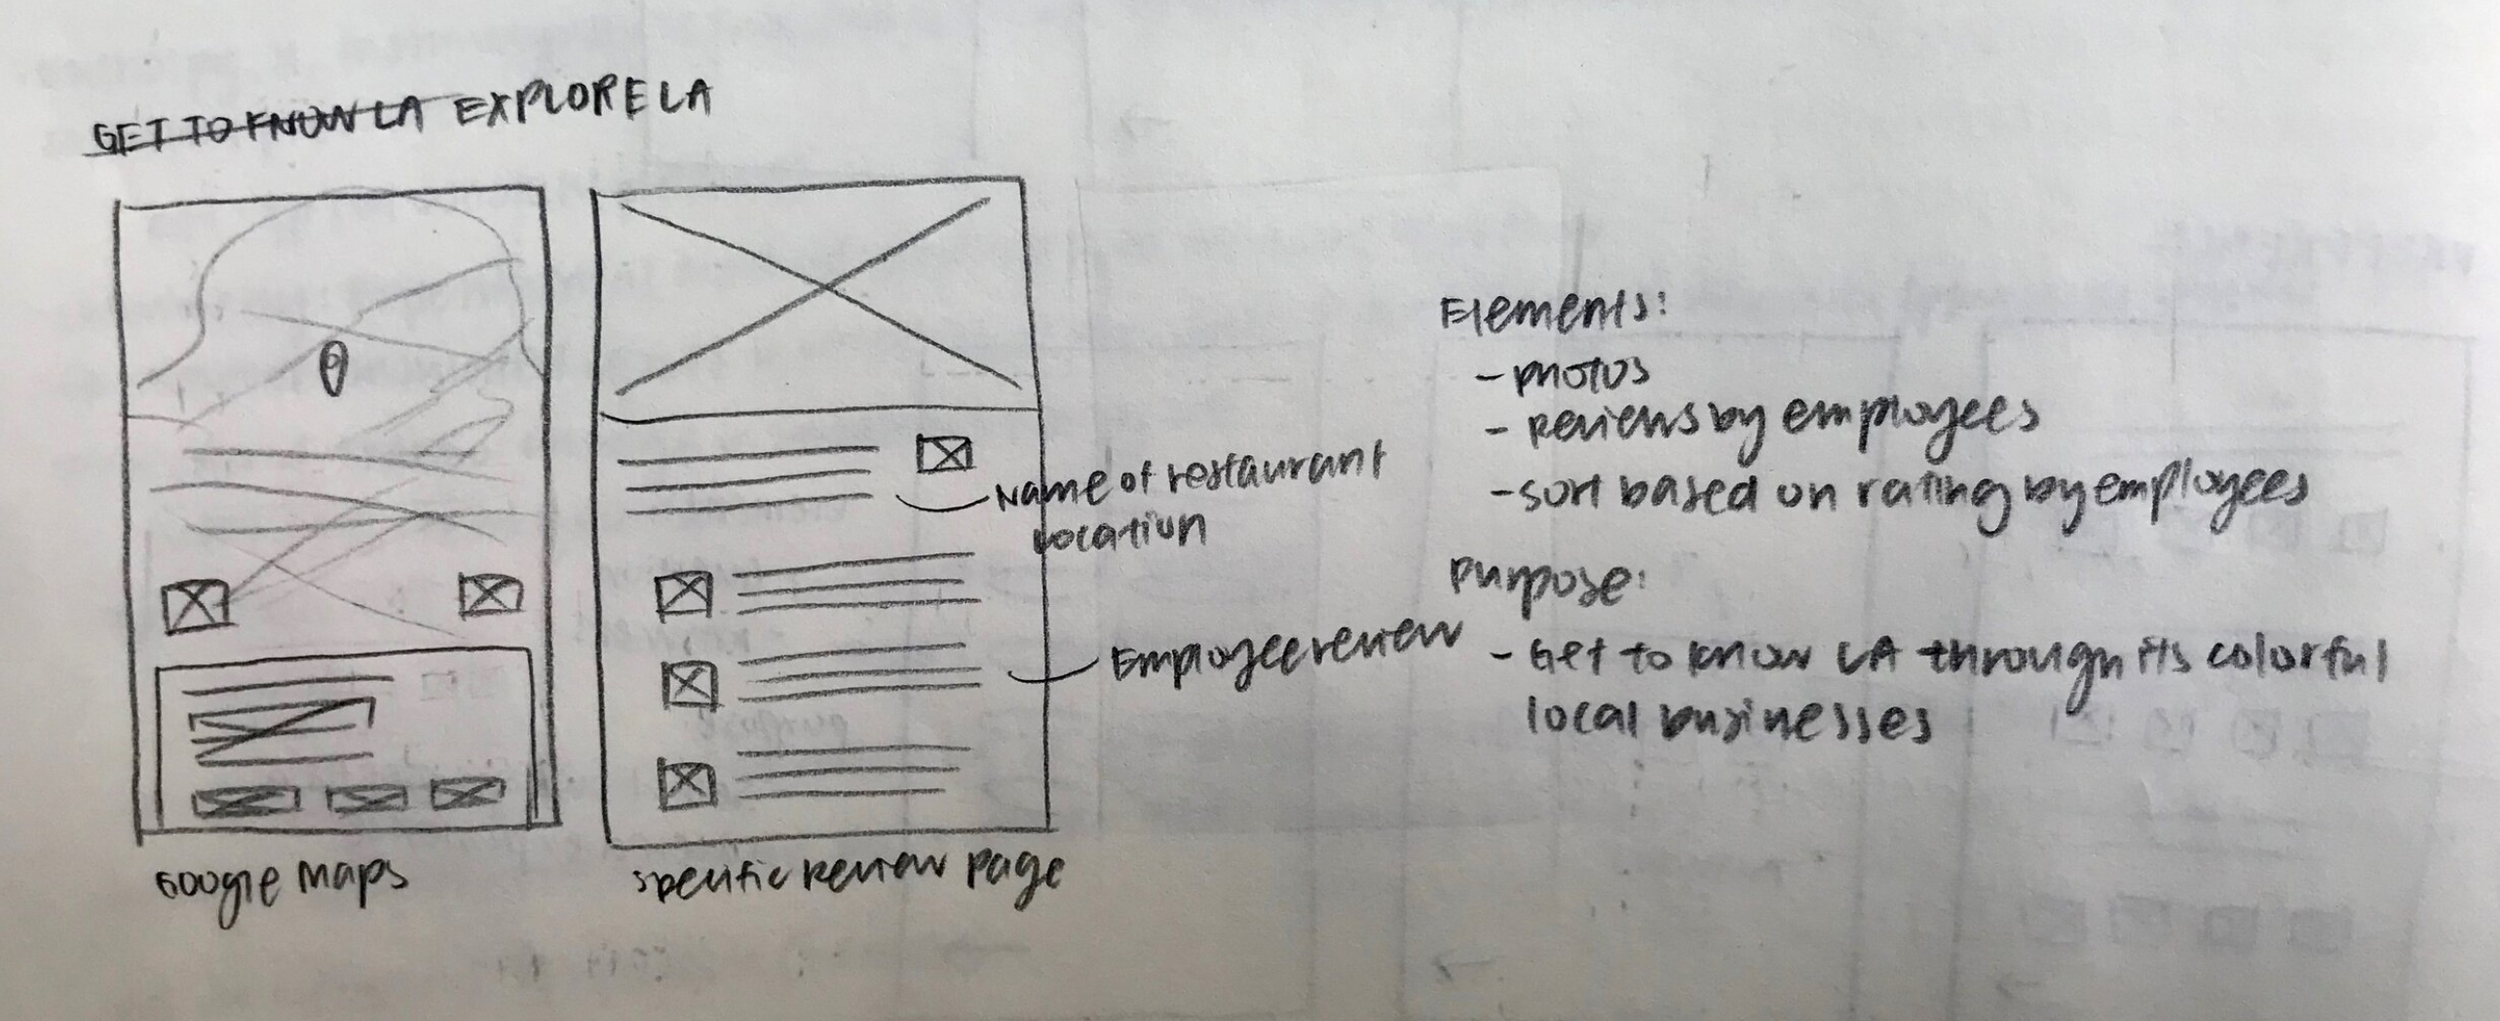 GET TO KNOW LA EXPLORE LA
Name of restaurant
Location
Employee review
Google Maps
Specific Review Page
Elements:
- photos
- Reviews by employees
- sort based on rating by employees
Purpose:
- Get to know LA through its colorful
local businesses